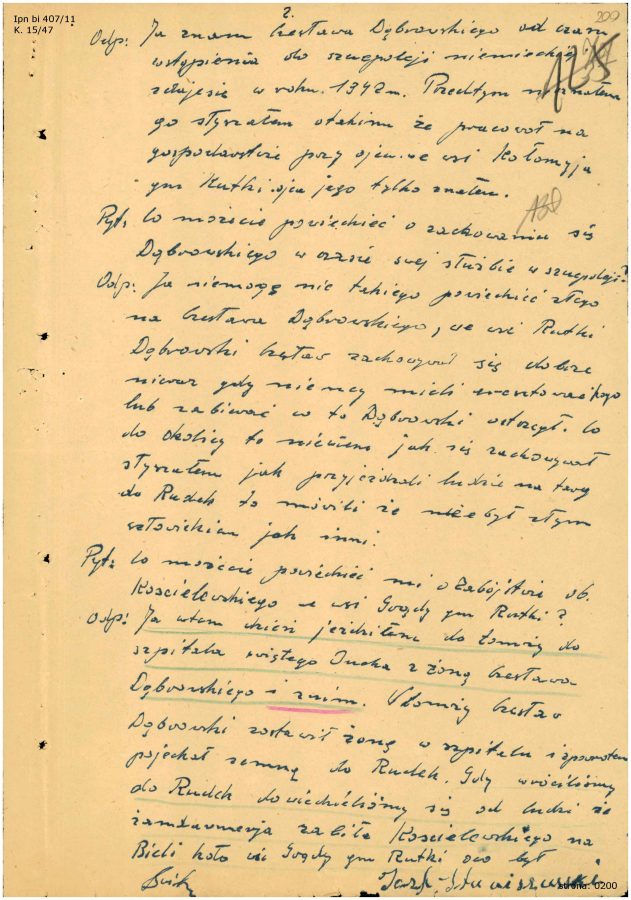 Ipn bi 407/11
K. 15/47
2.
200
Odp: Ja znam Czesława Dąbrowskiego od czasu
wstąpienia do szucpolcji niemieckiej
zdajesię w roku. 1942 r. Przedtym nieznałem
go słyszałem otakim że pracował na
gospodarstwie przy ojcu we wsi Kołomyja
gm Rutki. ojca jego tylko znałem.
130
Pyt: Co możecie powiedzieć o zachowaniu się
Dąbrowskiego w czasie swej służbie w szucpolcji?
Odp: Ja niemogę nic takiego powiedzieć złego
na Czesława Dąbrowskiego, we wsi Rutki
Dąbrowski Czesław zachowywał się dobrze
nieraz gdy niemcy mieli aresztować kogo
lub zabierać w to Dąbrowski ostrzegł. Co
do okolicy to niewiem jak się zachowywał
słyszałem jak przyjeżdzali ludzie na targ
do Rudek to mówili że nie był złym
człowiekiem jak inni.
Pyt: Co możecie powiedzieć mi o zabójstwie ob.
Kościelewskiego w wsi Grądy gm Rutki?
Odp: Ja wtem dzień jeździłem do Łomży do
szpitala świętego Ducha z żoną Czesława
Dąbrowskiego i znim. Włomży Czesław
Dąbrowski zostawił żonę w szpitalu i zpowrotem
pojechał zemną do Rudek. Gdy wróciliśmy
do Rudek dowiedzieliśmy się od ludzi że
żandarmerja zabiła Kościelewskiego na
Bieli koło wsi Grądy gm Rutki on był
strona: 0200